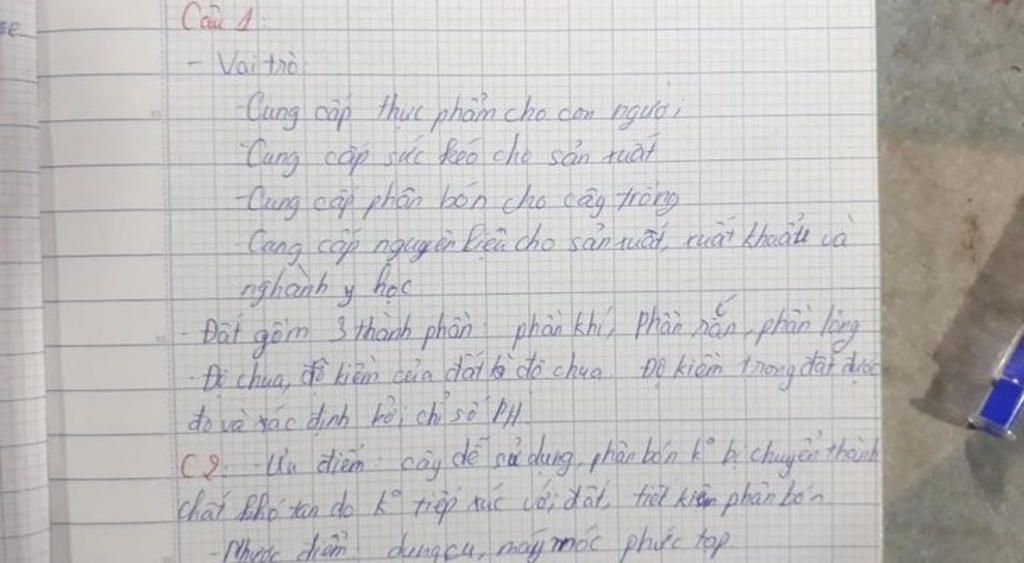 Câu 1:
- Vai trò:
- Cung cấp thực phẩm cho con người
- Cung cấp sức kéo cho sản xuất
- Cung cấp phân bón cho cây trồng
- Cung cấp nguyên liệu cho sản xuất, xuất khẩu và
nghành y học
- Đất gồm 3 thành phần: phần khí, phần rắn, phần lỏng
- Độ chua, độ kiềm của đất là độ chua. Độ kiềm trong đất được
đo và xác định bởi chỉ số PH
C2: - Ưu điểm: cây dễ sử dụng, phân bón k° bị chuyển thành
chất khó tan do k° tiếp xúc với đất, tiết kiệm phân bón
- Nhược điểm: dụng cụ, máy móc phức tạp